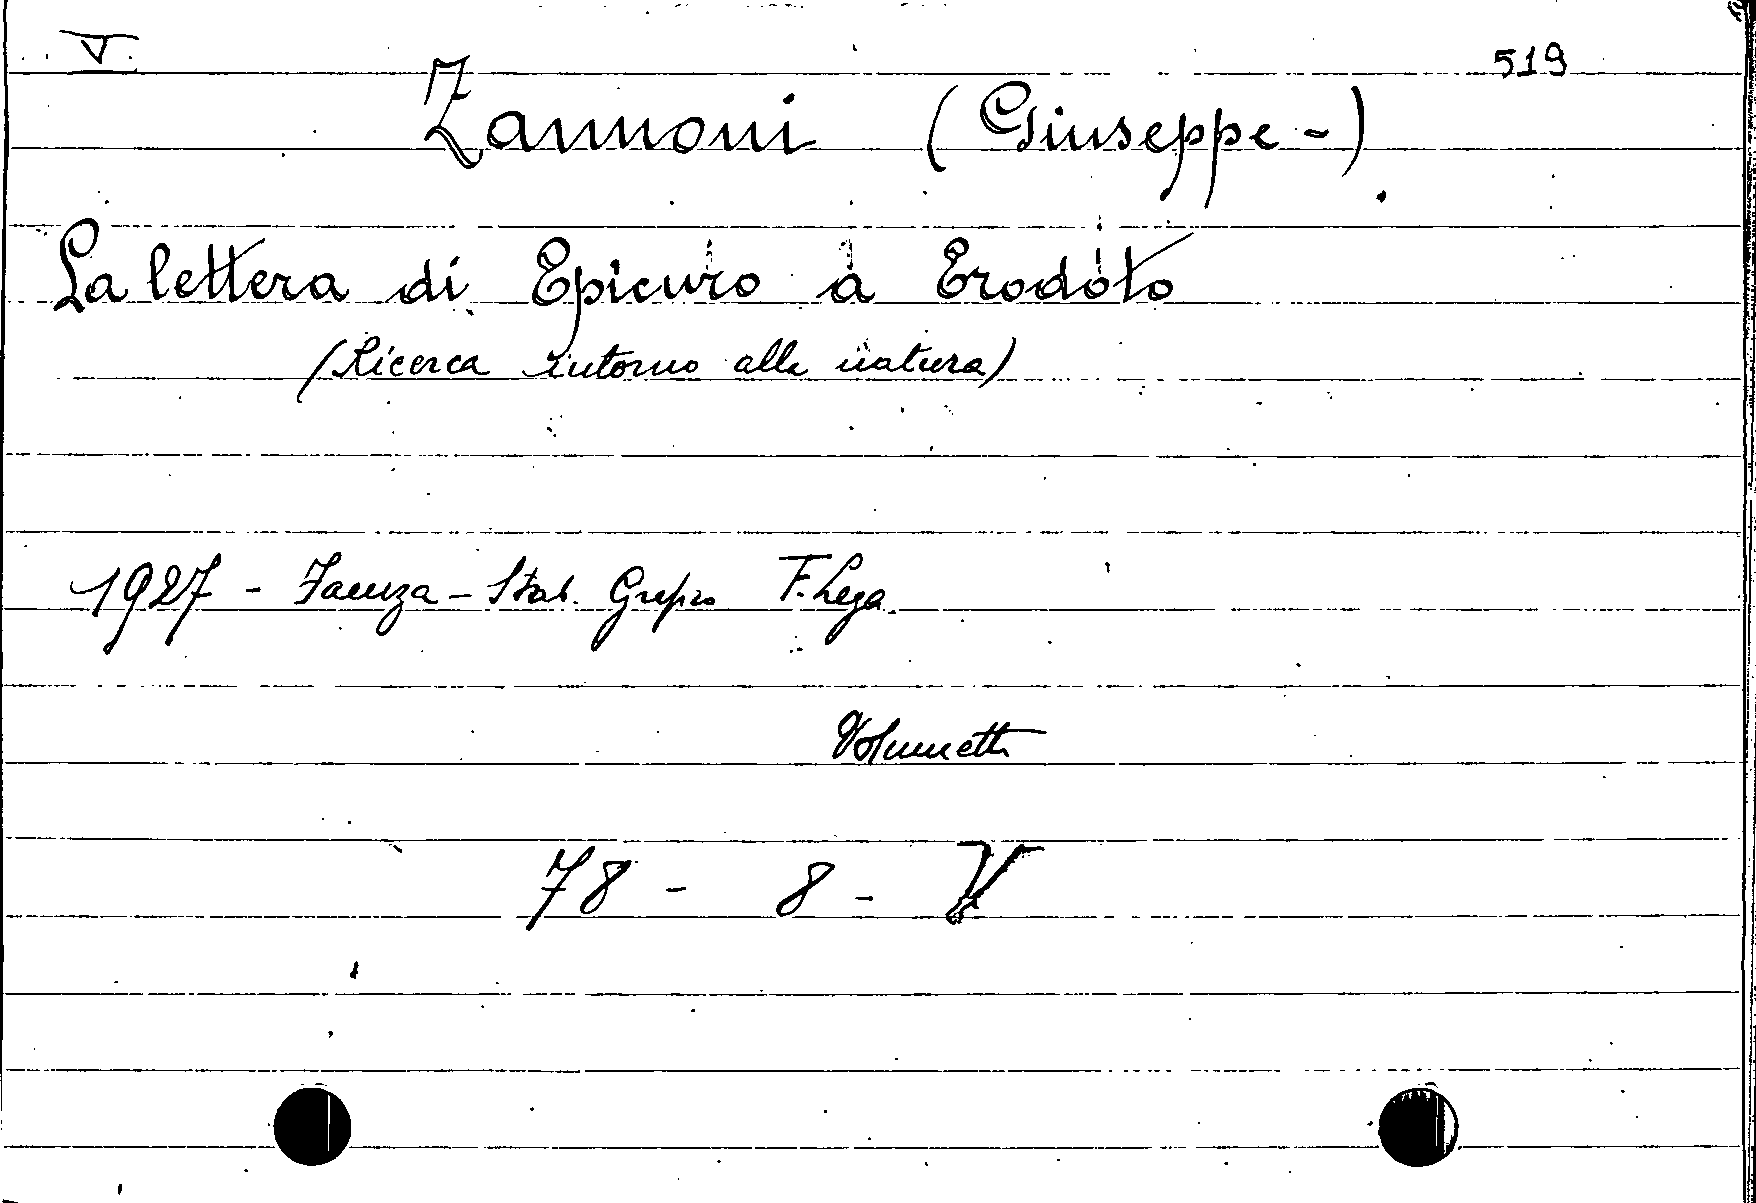 V. 519
Zannoni (Giuseppe-)
La lettera di Epicuro a Erodoto
(Ricerca intorno alla natura)
1927 - Faenza - Stab. Grafico F. Lega.
Volumetto
78 - 8 - V